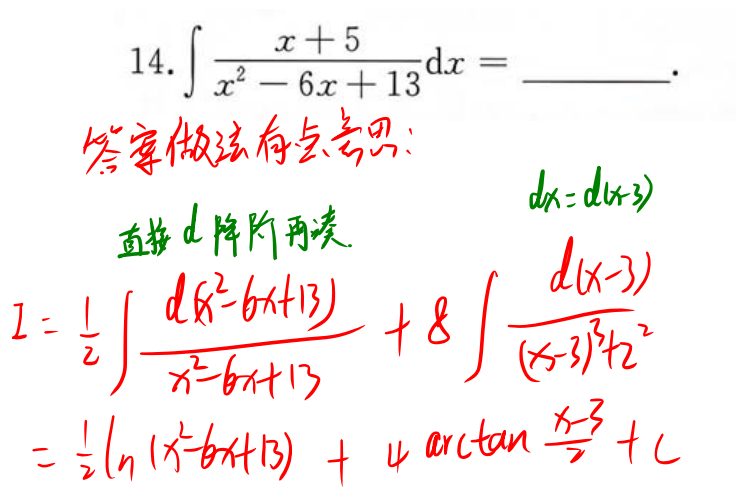 14. ∫ (x+5)/(x² − 6x + 13) dx = ______.
答案做法有点意思:
dx = d(x-3)
直接 d 降阶再凑.
I = 1/2 ∫ d(x²-6x+13)/(x²-6x+13) + 8 ∫ d(x-3)/((x-3)³+2²)
= 1/2 ln(x²-6x+13) + 4 arctan (x-3)/2 + C